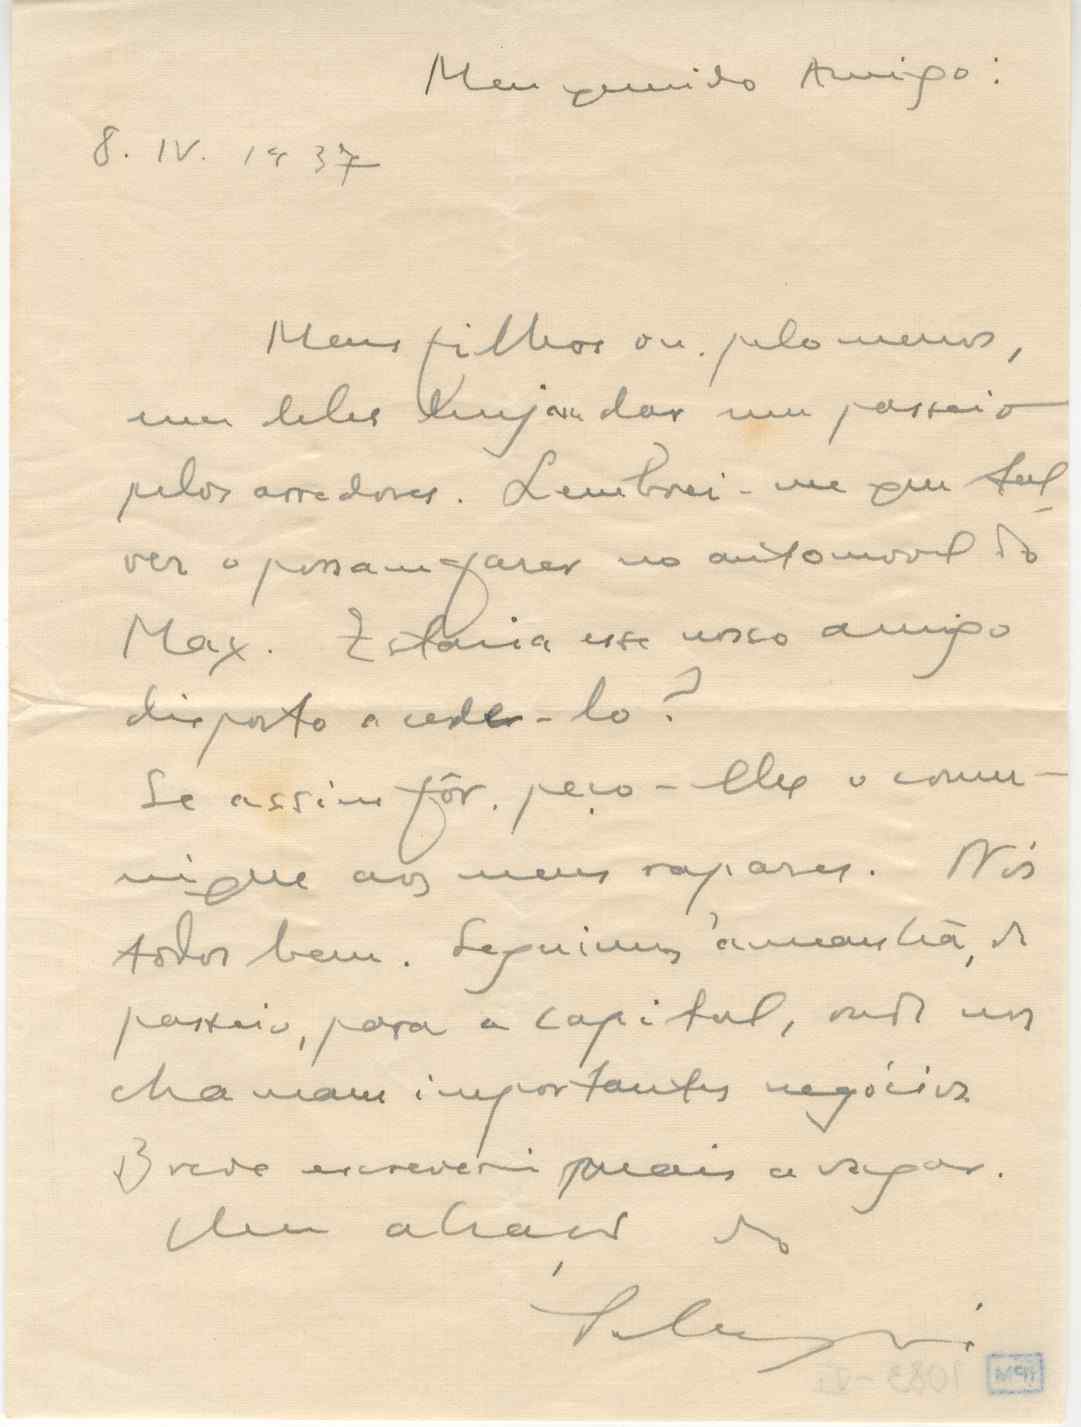 Meu querido Amigo:
8. IV. 1937
Meus filhos ou, pelo menos,
um deles desejam dar um passeio
pelos arredores. Lembrei-me que tal-
vez o possam fazer no automovel do
Max. Estaria esse nosso amigo
disposto a cedê-lo?
Se assim fôr, peço-lhe o commu-
nique aos meus rapazes. Nós
todos bem. Seguimos amanhã, de
passeio, para a capital, onde nos
chamam importantes negócios.
Breve escreverei mais a vagar.
Um abraço do
1083-V